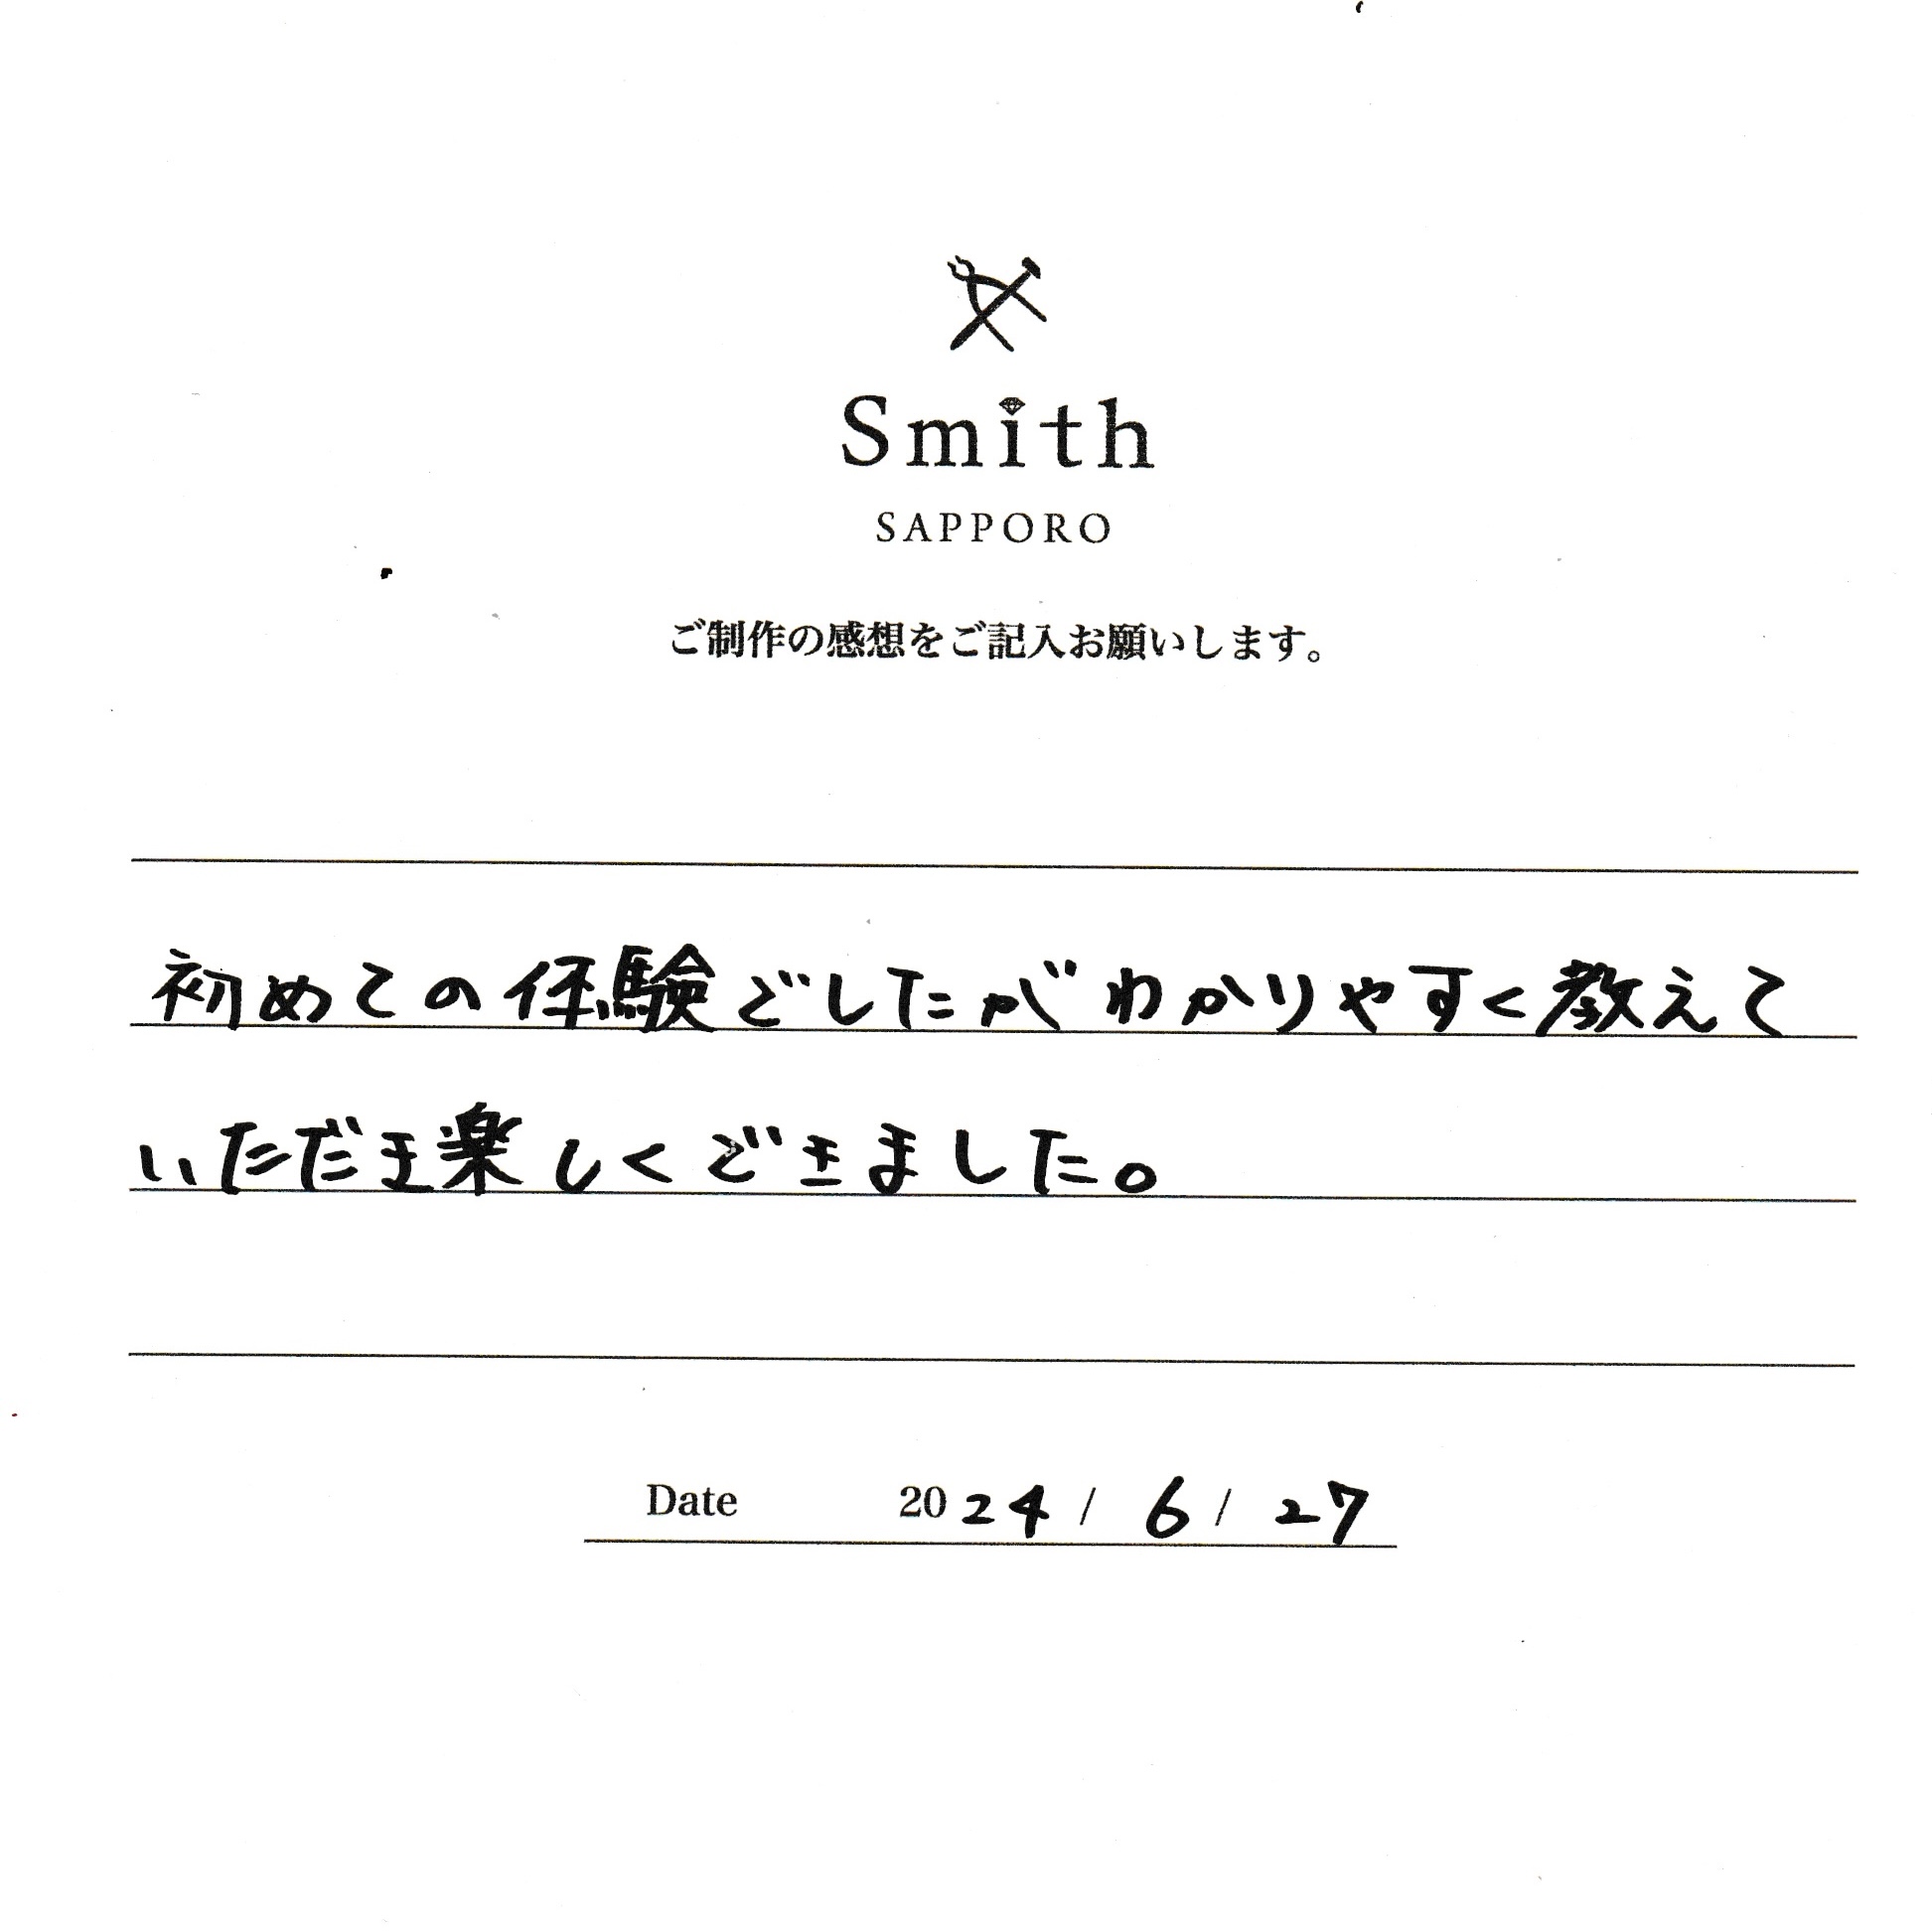 Smith
SAPPORO
ご制作の感想をご記入お願いします。
初めての体験でしたがわかりやすく教えて
いただき楽しくできました。
Date 2024 / 6 / 27